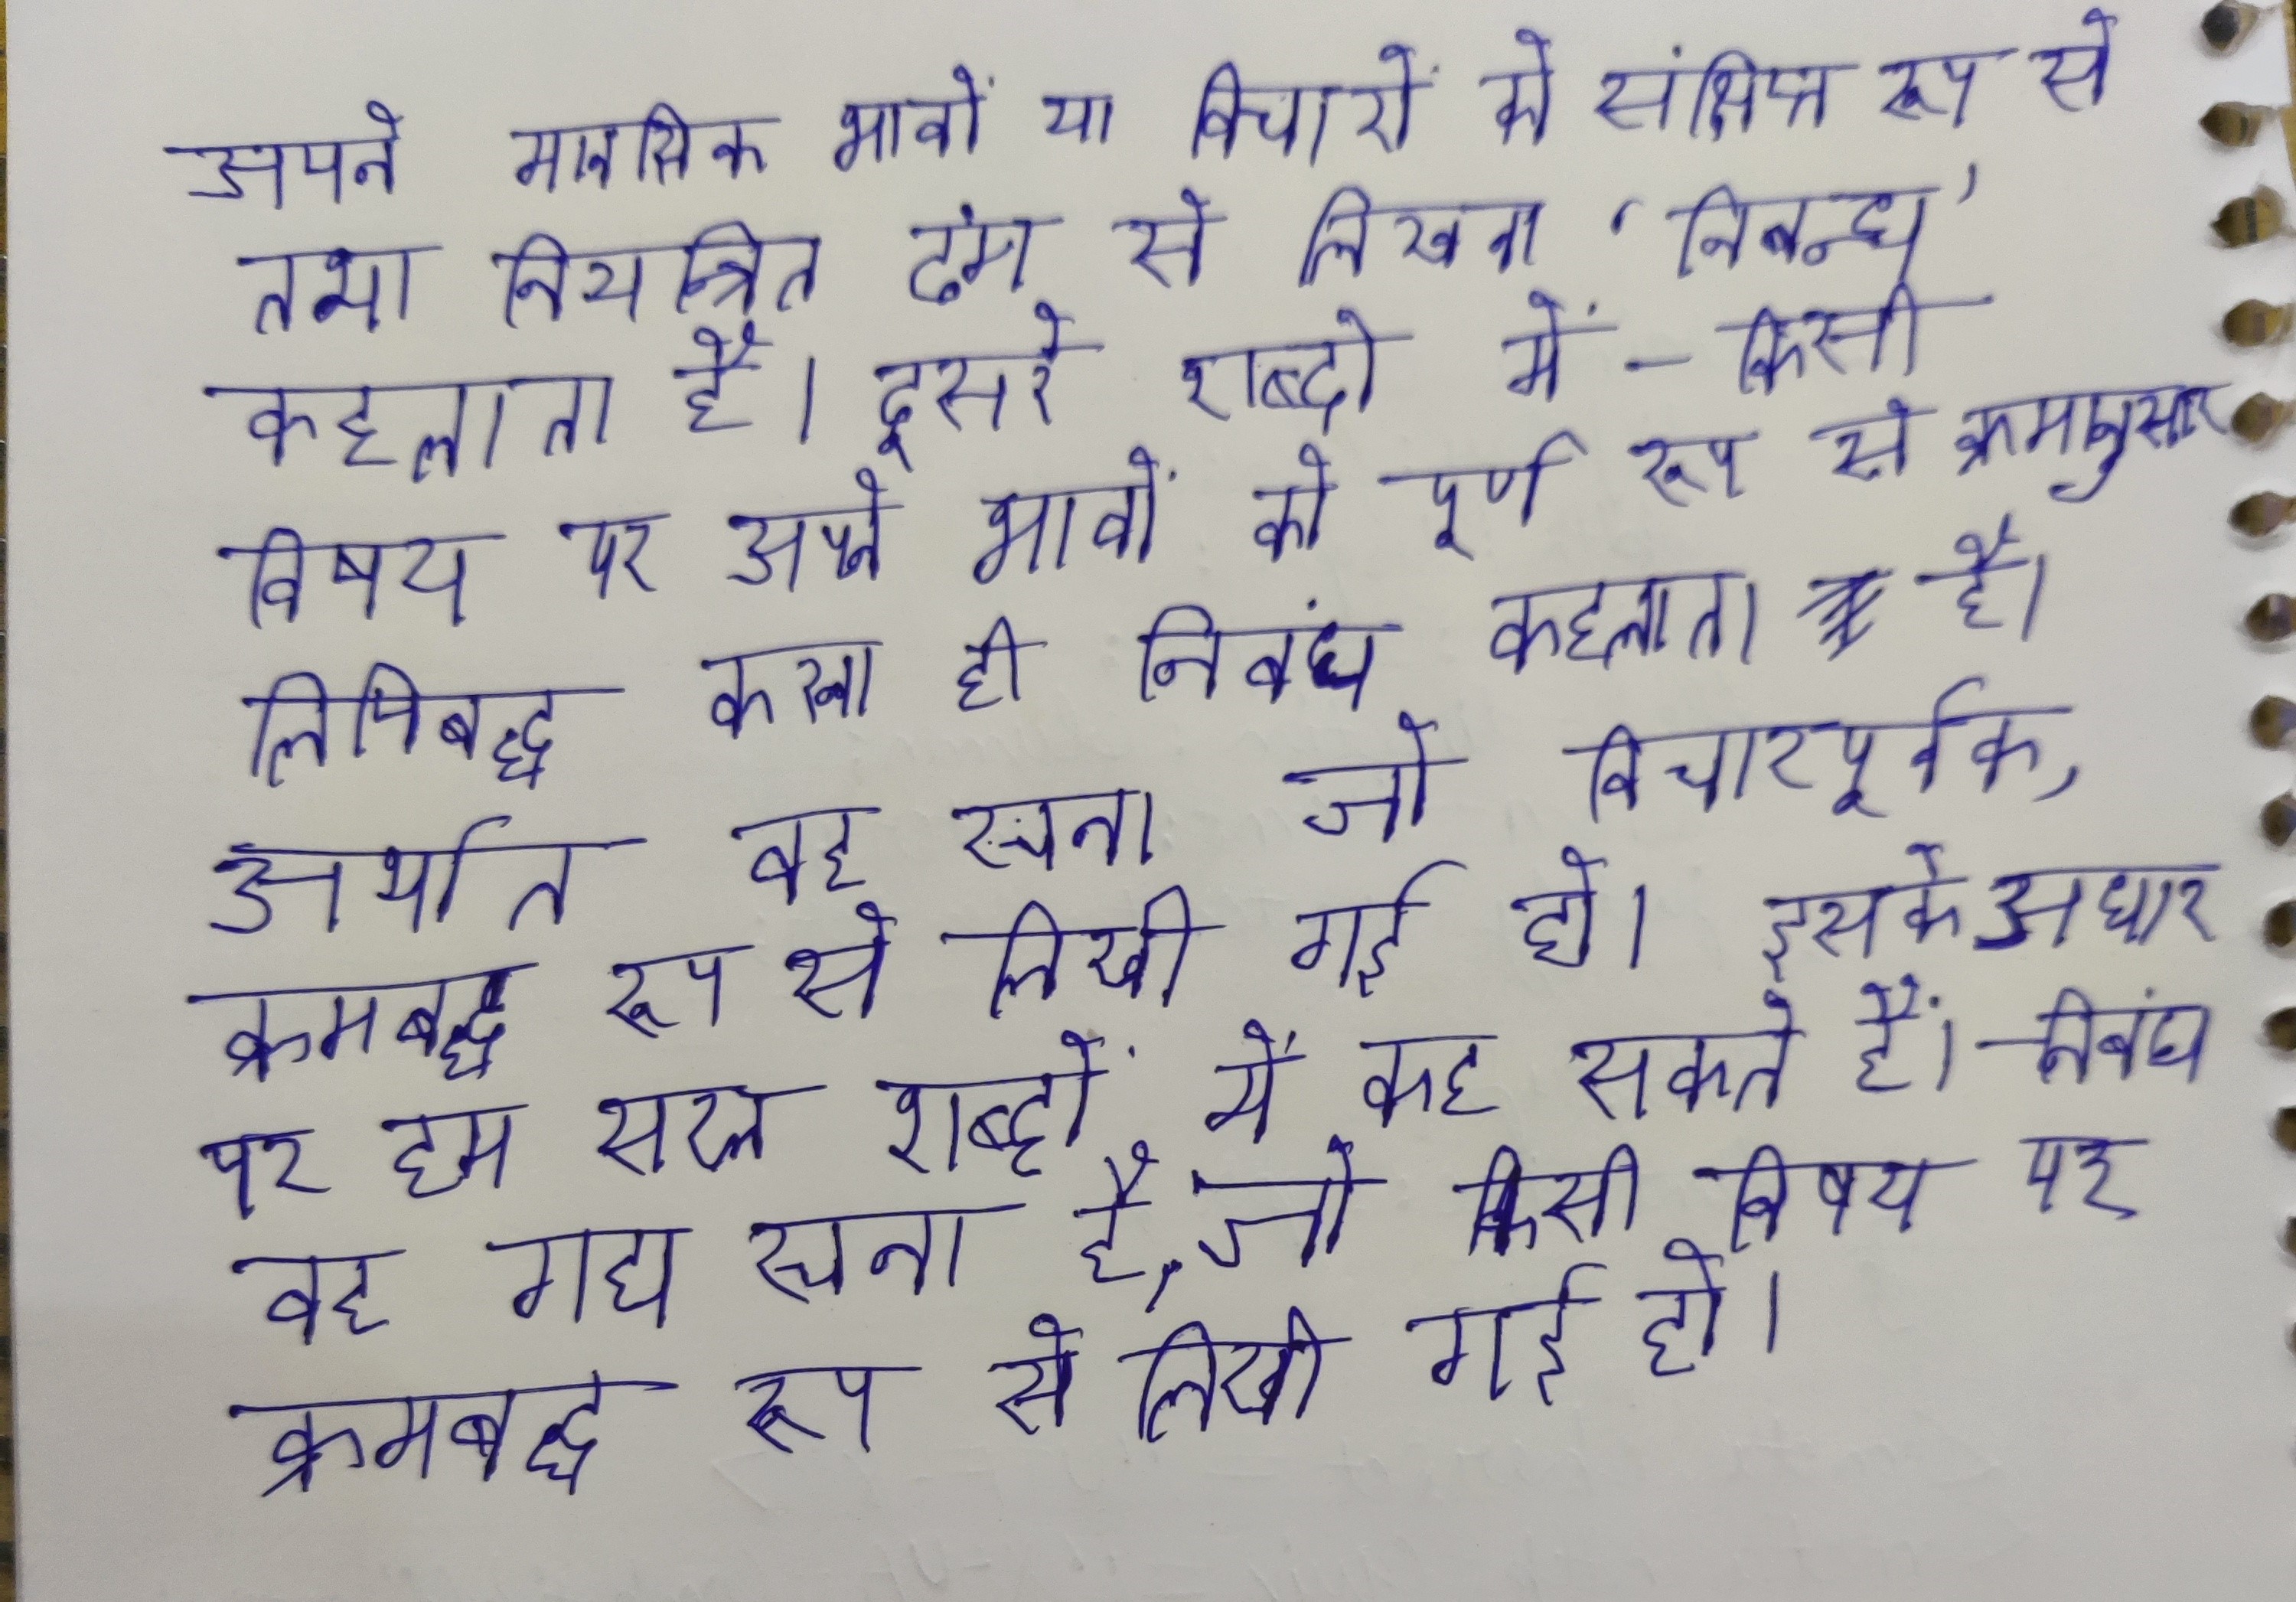 अपने मानसिक भावों या विचारों को संक्षिप्त रूप से
तथा नियन्त्रित ढंग से लिखना 'निबन्ध'
कहलाता है। दूसरे शब्दो में - किसी
विषय पर अपने भावों को पूर्ण रूप से क्रमानुसार
लिपिबद्ध करना ही निबंध कहलाता है।
अर्थात वह रचना जो विचारपूर्वक,
क्रमबद्ध रूप से लिखी गई हो। इसके अधार
पर हम सरल शब्दों में कह सकते हैं। निबंध
वह गद्य रचना है, जो किसी विषय पर
क्रमबद्ध रूप से लिखी गई हो।